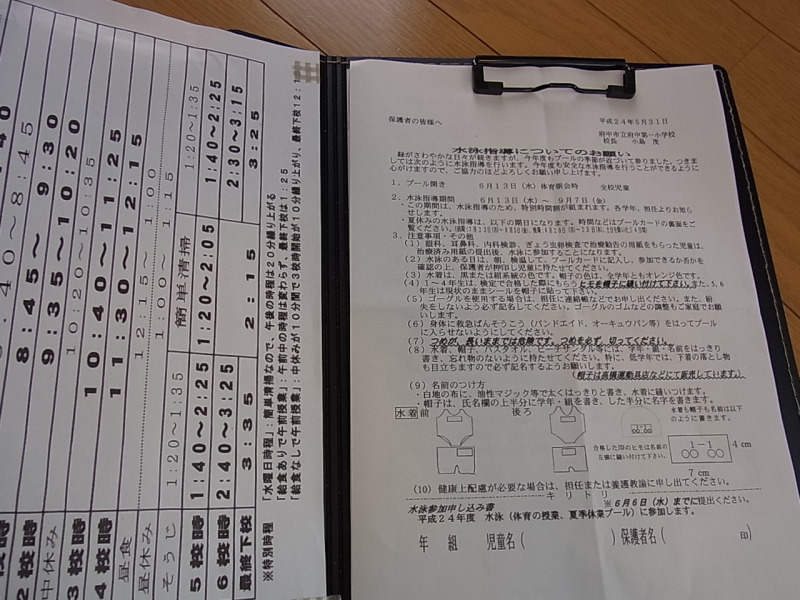 保護者の皆様へ
平成24年5月31日
府中市立府中第一小学校
校長 小島 茂
水泳指導についてのお願い
緑がさわやかな日々が続きますが、今年度もプールの季節が近づいて参りました。つきま
しては次のように水泳指導を行います。今年度も安全な水泳指導を行うことができるように
心がけますので、ご協力のほどよろしくお願い申し上げます。
1.プール開き 6月13日(水)体育朝会時 全校児童
2.水泳指導期間 6月13日(水)～ 9月7日(金)
・この期間は、水泳指導のため、特別時間割が組まれます。各学年、担任よりお知ら
せします。
・夏休みの水泳指導は、以下の期日になります。時間などはプールカードの裏面をご
覧ください。
3.注意事項・その他
(1)眼科、耳鼻科、内科検診、ぎょう虫検査で治療勧告の用紙をもらった児童は、
治療済み用紙の提出後、水泳に参加することになります。
(2)水泳のある日は、朝、検温して、プールカードに記入し、参加できるか否かを
確認の上、保護者が押印し児童に持たせてください。
(3)水着は、黒または紺系統の色です。帽子の色は、全学年ともオレンジ色です。
(4)1～4年生は、検定で合格した際にもらうヒモを帽子に縫い付けて下さい。また、5、6
年生は現状のままシールを帽子に貼って下さい。
(5)ゴーグルを使用する場合は、担任に連絡帳などでお申し出ください。また、紛
失をしないよう必ず記名してください。ゴーグルのゴムなどの調整もご家庭でお願
いします。
(6)身体に救急ばんそうこう(バンドエイド、オーキュウバン等)をはってプール
に入らせないようにしてください。
(7) つめが、長いままでは危険です。つめを必ず、切ってください。
(8)水着、帽子、バスタオル、ビーチサンダル等には、学年・組・名前をはっきり
書き、忘れ物のないように持たせてください。特に、低学年では、下着の落とし物
も目立ちますので必ず記名するようお願いします。
(帽子は高橋運動具店などにて販売しています。)
(9)名前のつけ方
・白地の布に、油性マジック等で太くはっきりと書き、水着に縫いつけます。
・帽子は、氏名欄の上半分に学年・組を書き、した半分に名字を書きます。
水着 前 後ろ
水着も帽子も名前は以下
のように書きます。
合格した印のヒモは名前の
左側に縫い付けて下さい。
1-1
○○ ○○
4cm
7cm
(10)健康上配慮が必要な場合は、担任または養護教諭に申し出てください。
キ リ ト リ
※6月6日(水)までに提出ください。
水泳参加申し込み書
平成24年度 水泳(体育の授業、夏季休業プール)に参加します。
年 組 児童名( )保護者名( 印)
8:45
2校時 8:45～ 9:30
中休み
3校時 9:35～10:20
10:20～10:35
4校時 10:40～11:25
11:30～12:15
昼食 12:15～ 1:00
昼休み 1:00～ 1:15
そうじ 1:20～1:35 簡単清掃 1:20～1:35
5校時 1:40～2:25 1:20～2:05 1:40～2:25
6校時 2:40～3:25 2:30～3:15
最終下校 3:35 2:15 3:25
※特別時程
「水曜日時程」：簡単清掃なので、午後の時程は20分繰り上がる
「給食ありで午前授業」：午前中の時程は変わらず、最終下校は1:25
「給食なしで午前授業」：中休みが10分間で3校時開始が10分繰り上がり、最終下校12:1